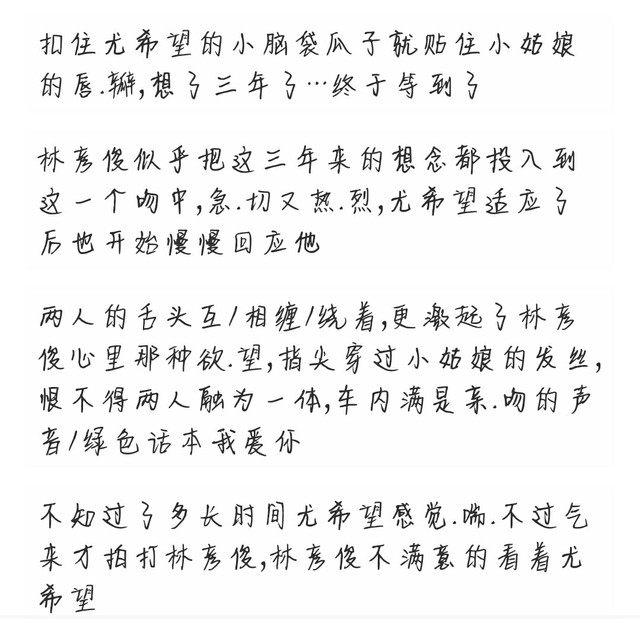 扣住尤希望的小脑袋瓜子就贴住小姑娘
的唇.瓣,想了三年了…终于等到了
林彦俊似乎把这三年来的想念都投入到
这一个吻中,急.切又热.烈,尤希望适应了
后也开始慢慢回应他
两人的舌头互/相缠/绕着,更激起了林彦
俊心里那种欲.望,指尖穿过小姑娘的发丝,
恨不得两人融为一体,车内满是亲.吻的声
音/绿色话本我爱你
不知过了多长时间尤希望感觉.喘.不过气
来才拍打林彦俊,林彦俊不满意的看着尤
希望